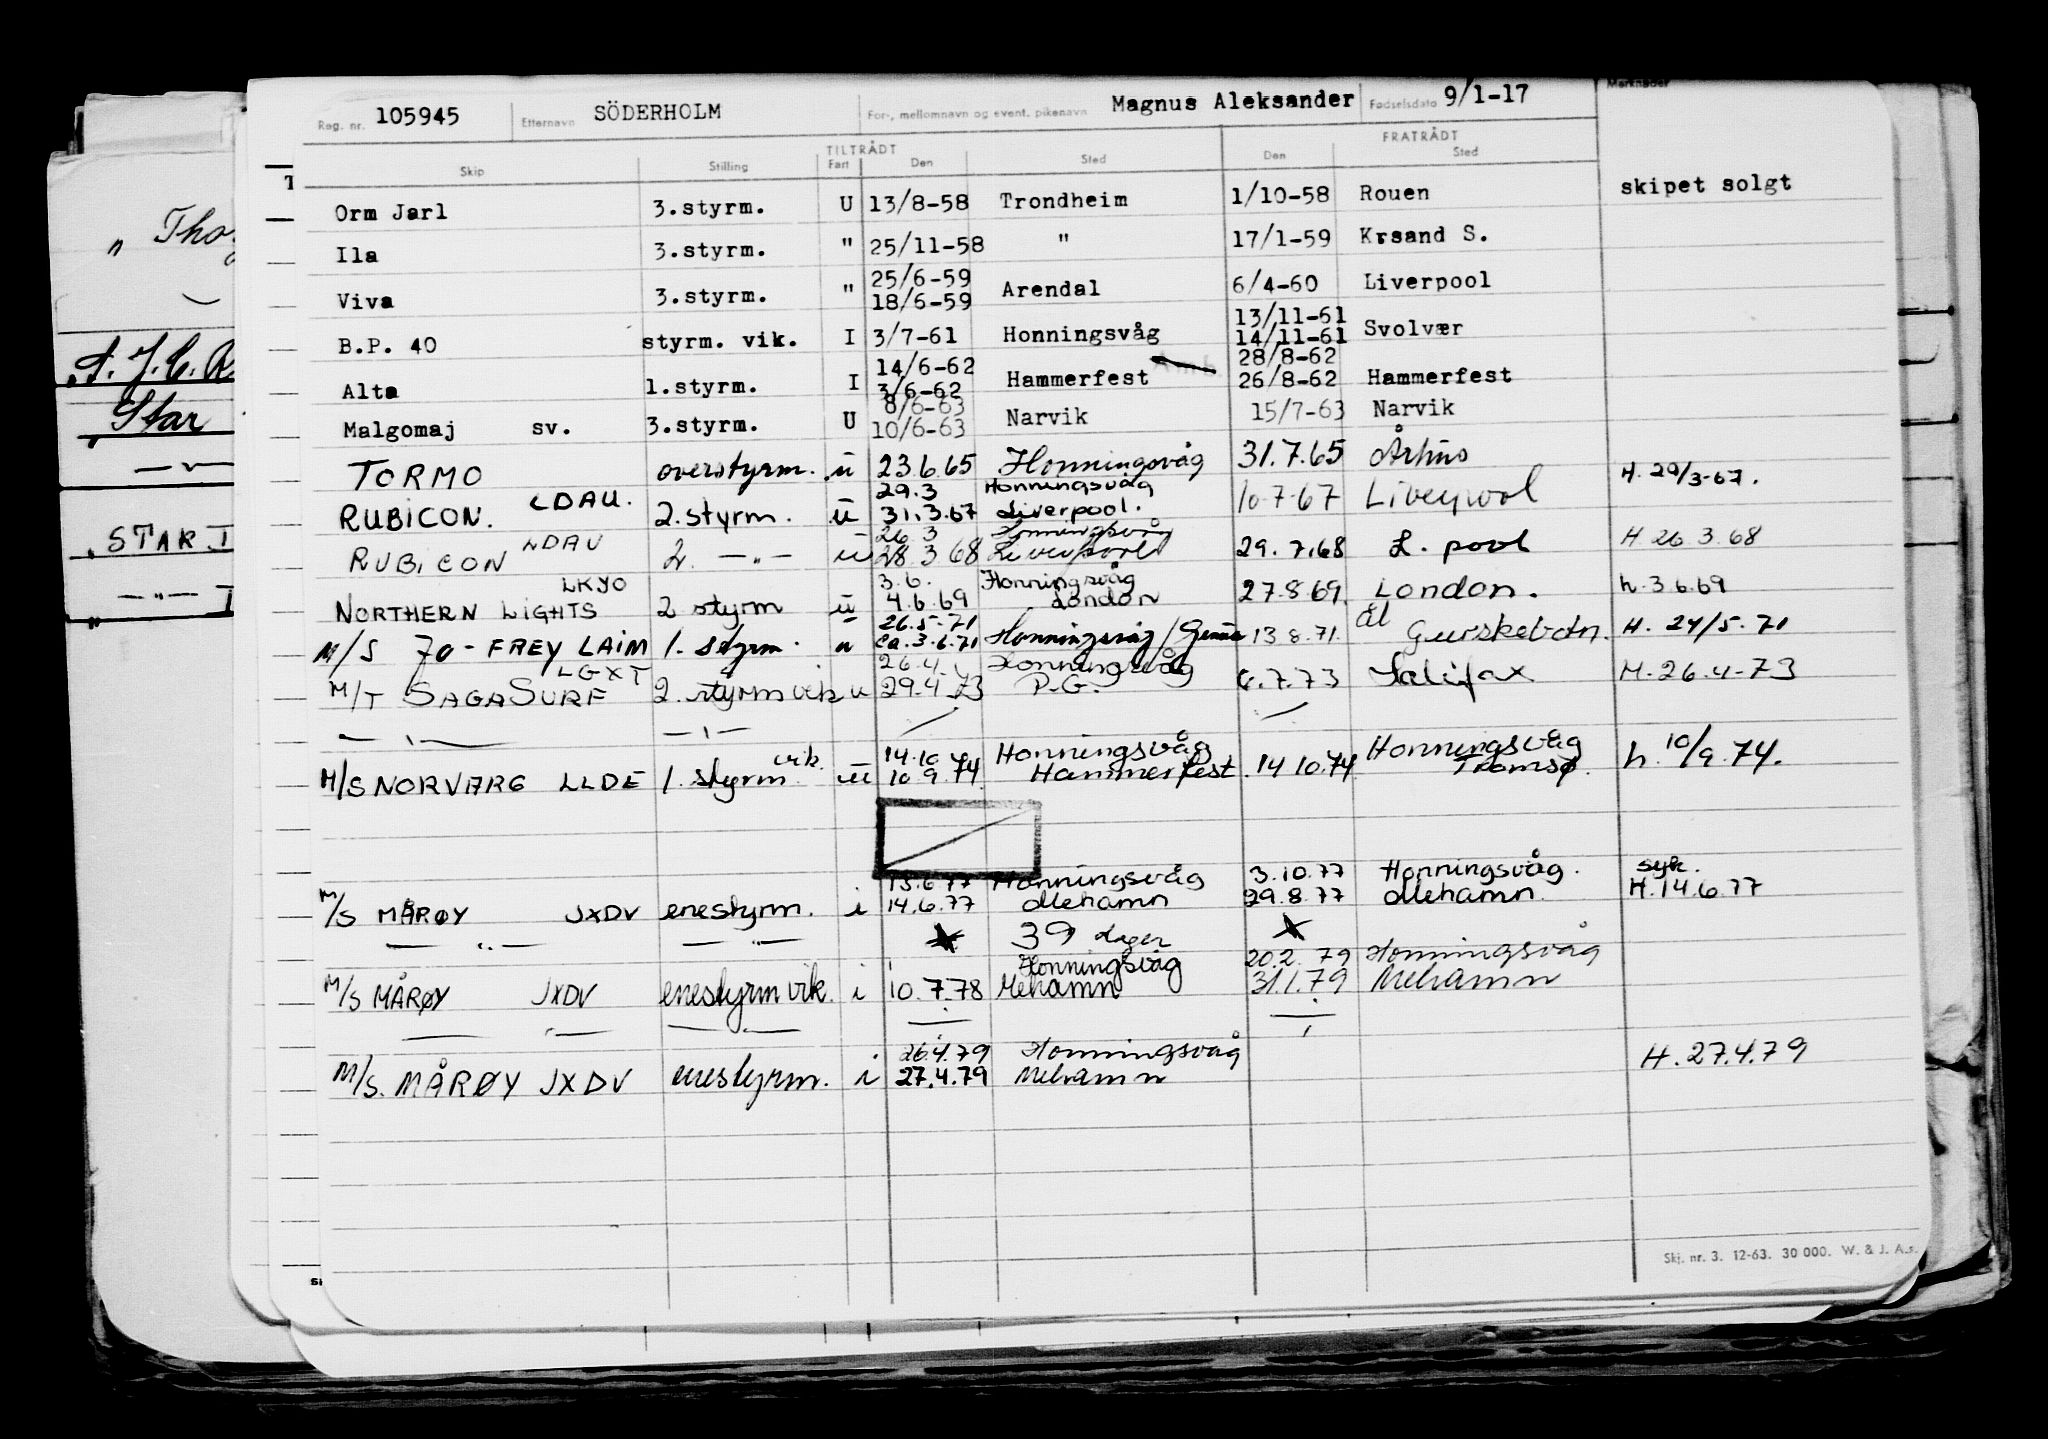 Reg. nr. 105945 Etternavn SÖDERHOLM For-, mellomnavn og event. pikenavn Magnus Aleksander Fødselsdato 9/1-17 Merknader
TILTRÅDT FRATRÅDT
Skip Stilling Fart Den Sted Den Sted
Orm Jarl 3.styrm. U 13/8-58 Trondheim 1/10-58 Rouen skipet solgt
Ila 3.styrm. " 25/11-58 " 17/1-59 Krsand S.
25/6-59
Viva 3.styrm. " 18/6-59 Arendal 6/4-60 Liverpool
13/11-61
B.P. 40 styrm. vik. I 3/7-61 Honningsvåg 14/11-61 Svolvær
14/6-62 28/8-62
Alta 1.styrm. I 3/6-62 Hammerfest 26/8-62 Hammerfest
8/6-63
Malgomaj sv. 3.styrm. U 10/6-63 Narvik 15/7-63 Narvik
TORMO overstyrm. u 23.6.65 Honningsvåg 31.7.65 Århus
29.3 Honningsvåg
RUBICON. LDAU. 2.styrm. u 31.3.67 Liverpool. 10-7-67 Liverpool H. 29/3-67.
26.3 Honningsvåg
RUBICON LDAU 2. —"— u 28.3.68 Liverpool 29.7.68 L.pool H 26.3.68
3.6. Honningsvåg
NORTHERN LIGHTS LKYO 2 styrm u 4.6.69 London 27.8.69. London. h.3.6.69
26.5.71 Ål
M/S 70 - FREY LAIM 1. styrm. u ca.3.6.71 Honningsvåg/Genua 13.8.71. Gurskebotn. H. 24/5.71
26.4. Honningsvåg
M/T SAGASURF LGXT 2.styrm vik u 29.4.73 P.G. 6.7.73 Halifax H.26.4-73
— " — — " —
14.10 Honningsvåg Honningsvåg
M/S NORVARG LLDE 1.styrm vik. u 10.9.74. Hammerfest. 14.10.74 Tromsø. h. 10/9.74.
13.6.77 Honningsvåg 3.10.77 Honningsvåg. syk.
M/S MÅRØY JXDV enestyrm. i 14.6.77 Mehamn 29.8.77 Mehamn. H.14.6.77
— " — — " — 39 dager
Honningsvåg 20.2.79 Honningsvåg
M/S MÅRØY JXDV enestyrm vik. i 10.7.78 Mehamn 31.1.79 Mehamn
— " — — " —
26.4.79 Honningsvåg
M/S. MÅRØY JXDV enestyrm. i 27.4.79 Mehamn H.27.4.79
Skj. nr. 3. 12-63. 30 000. W. & J. A.s.
Star
STAR I